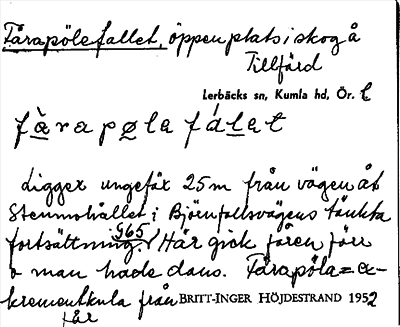 Fårapölefallet, öppen plats i skog å
Tillfärd
Lerbäcks sn, Kumla hd, Ör. l
fàrapølafálet
Ligger ungefär 25m från vägen åt
Stenmohållet i Björnfallsvägens tänkta
965
fortsättning. Här gick fåren förr
o man hade dans. Fårapöla=ex-
krementkula från
får
BRITT-INGER HÖJDESTRAND 1952